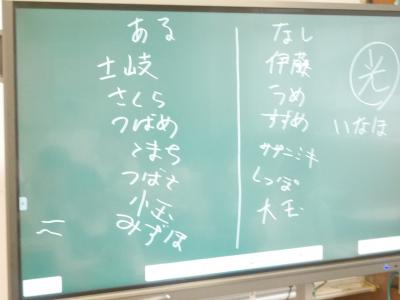 ある
土岐
さくら
つばめ
こまち
つばさ
小玉
みずほ
なし
伊藤
うめ
すずめ
ササニシキ
しっぽ
大玉
光
いなほ